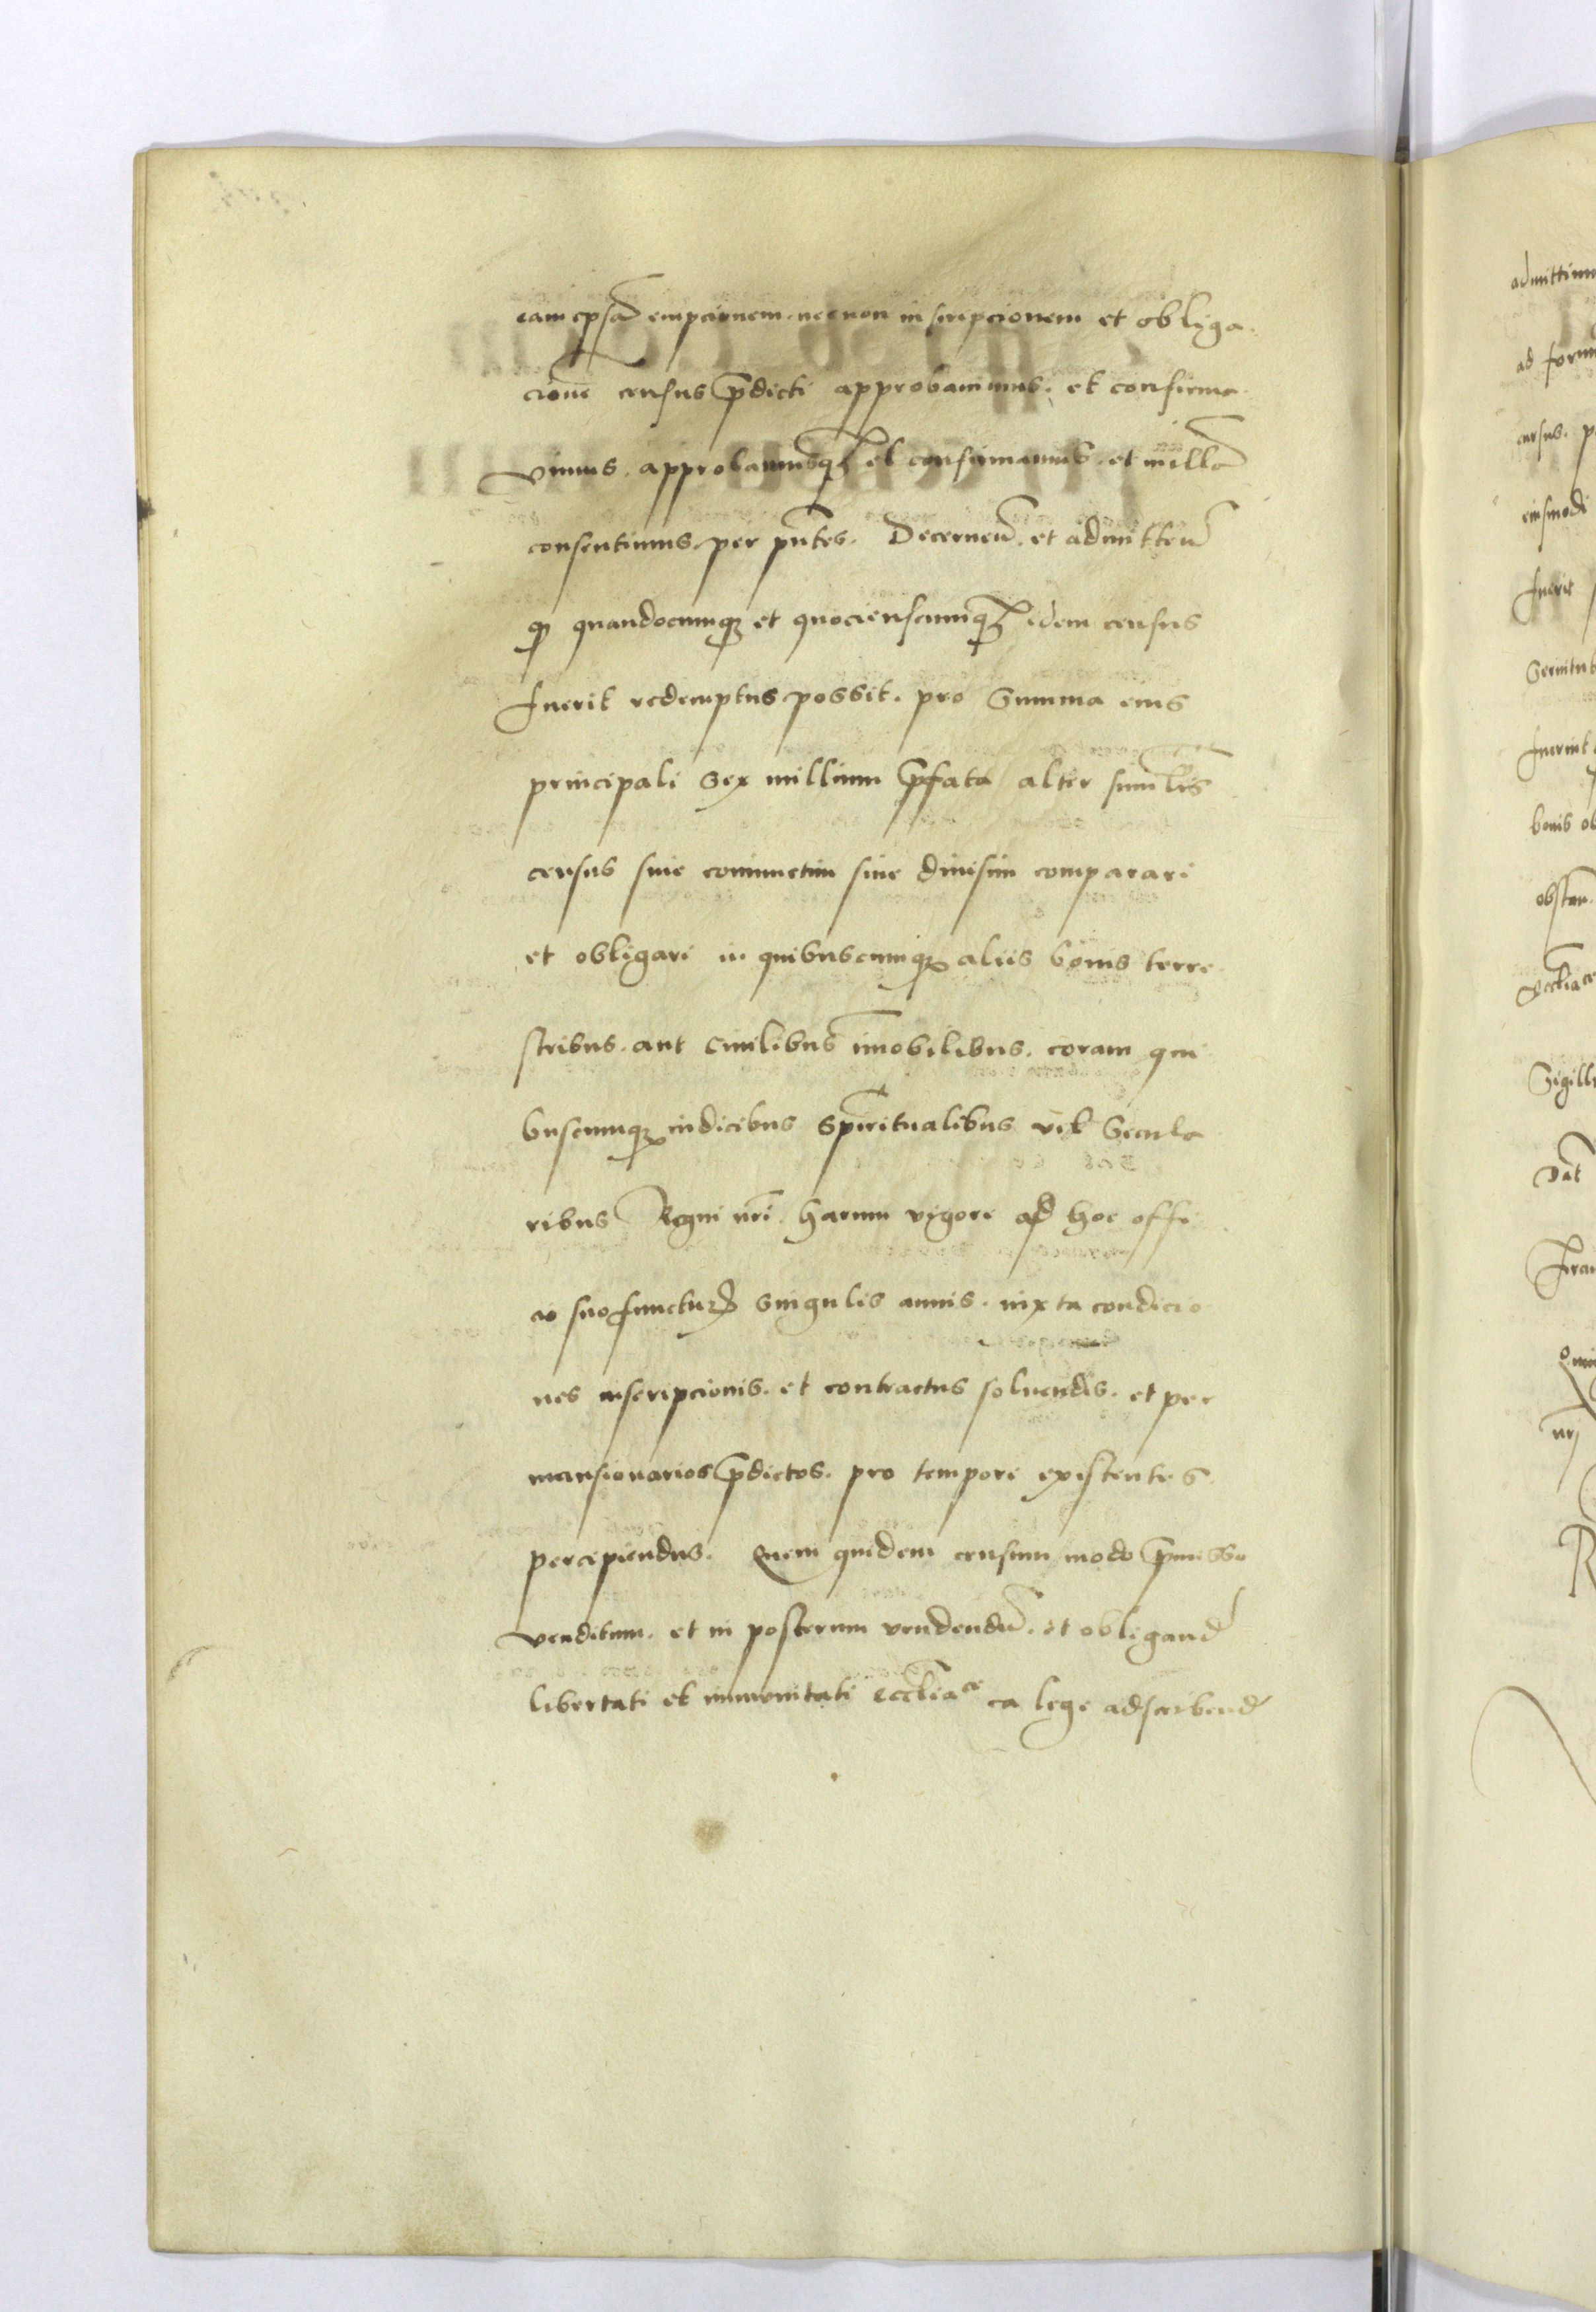 eam epſa͞ empcionem. necnon inscripcionem et obliga
cione͞ census p͞dicti approbauimus. et confirma
vimus. approbamusq3 et confirmamus. et in illa͞
consentimus. per pn͞tes. Decernen͞. et admitten͞
qp quandocumq3 et quocienscumq3 idem census
fuerit redemptus possit. pro Summa eius
principali Sex millium p͞fata alter simil͞is
census siue coniunctim siue diuisim comparari
et obligari in quibuscumq3 aliis bonis terre
stribus. aut Ciuilibus im͞obilibus. coram qui
buscumq3 iudicibus Spiritualibus vel Secula
ribus Regni nr͞i. harum vigore ad hoc offi
cio suo functur͞ Singulis annis. iuxta condicio
nes inscripcionis. et contractus soluendis. et per
mansionarios p͞dictos. pro tempore existentes
percipiendus. Quem quidem censum modo p͞misso
venditum. et in posterum vendendu͞. et obligand͞
libertati et immunitati eccl͞iace ea lege adscribend͞
admittimu
ad form
census. p
eiusmodi
fuerit
Seruitut
fuerint
bonis ob
obstan.
Eccl͞iace
Sigill
Dat͞